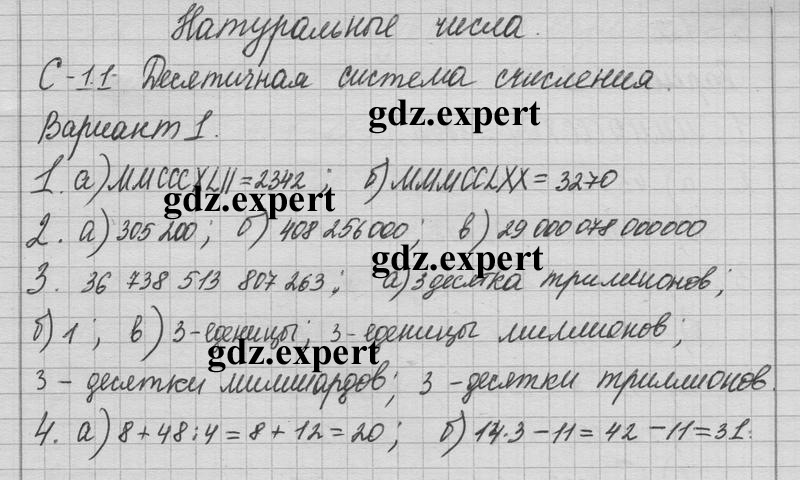 Натуральные числа.
С-11 Десятичная система счисления.
gdz.expert
Вариант 1.
1. а) MMCCCXLII = 2342 ; б) MMMCCLXX = 3270
gdz.expert
2. а) 305 200 ; б) 408 256 000 ; в) 29 000 078 000000
gdz.expert
3. 36 738 513 807 263 ; а) 3 десятка триллионов ;
б) 1 ; в) 3-еденицы ; 3-еденицы миллионов ;
gdz.expert
3 - десятки миллиардов ; 3 - десятки триллионов.
4. а) 8 + 48 : 4 = 8 + 12 = 20 ; б) 14 · 3 - 11 = 42 - 11 = 31.